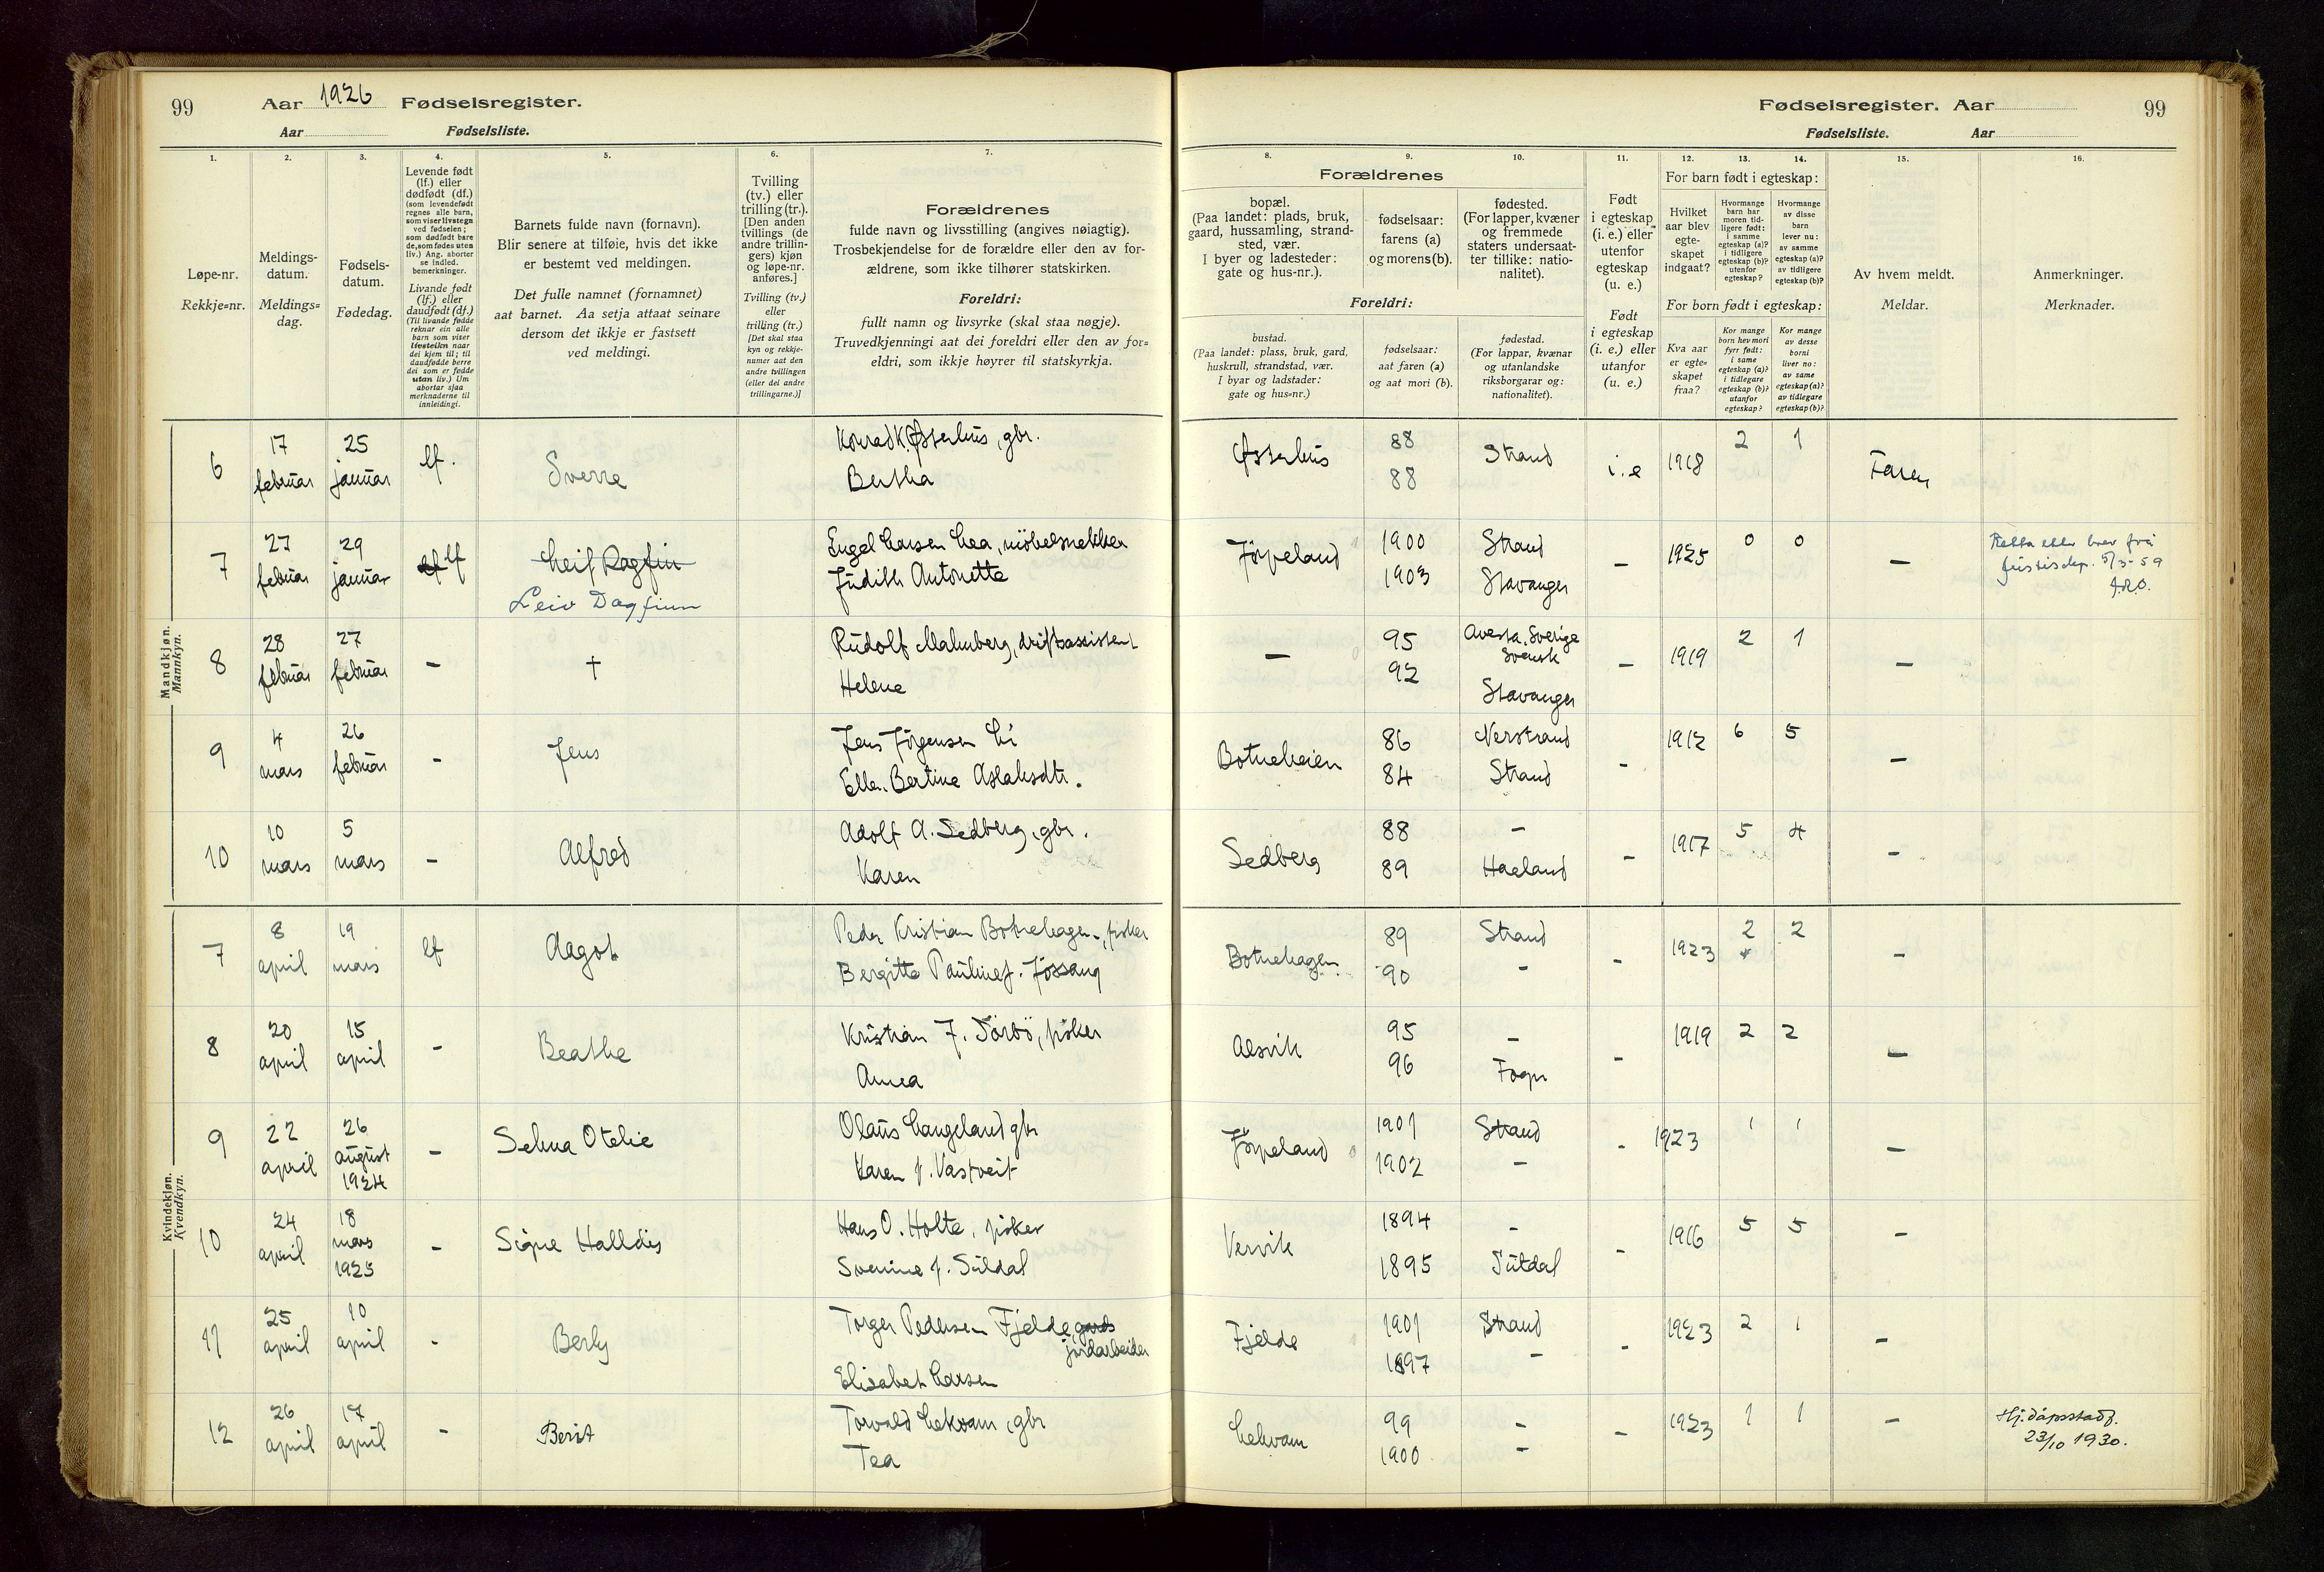 99 Aar 1926 Fødselsregister.
Aar Fødselsliste.
Fødselsregister. Aar 99
Fødselsliste. Aar
1. 2. 3. 4. 5. 6. 7.
8. 9. 10. 11. 12. 13. 14. 15. 16.
Løpe-nr.
Rekkje=nr.
Meldings-
datum.
Meldings=
dag.
Fødsels-
datum.
Fødedag.
Levende født
(lf.) eller
dødfødt (df.)
(som levendefødt
regnes alle barn,
som viser livstegn
ved fødselen;
som dødfødt bare
de, som fødes uten
liv.) Ang. aborter
se indled.
bemerkninger.
Livande født
(lf.) eller
daudfødt (df.)
(Til livande fødde
reknar ein alle
barn som viser
livsteikn naar
dei kjem til; til
daudfødde berre
dei som er fødde
utan liv.) Um
abortar sjaa
merknaderne til
innleidingi.
Barnets fulde navn (fornavn).
Blir senere at tilføie, hvis det ikke
er bestemt ved meldingen.
Det fulle namnet (fornamnet)
aat barnet. Aa setja attaat seinare
dersom det ikkje er fastsett
ved meldingi.
Tvilling
(tv.) eller
trilling (tr.).
[Den anden
tvillings (de
andre trillin-
gers) kjøn
og løpe-nr.
anføres.]
Tvilling (tv.)
eller
trilling (tr.)
[Det skal staa
kyn og rekkje-
numer aat den
andre tvillingen
(eller dei andre
trillingarne.)]
Forældrenes
fulde navn og livsstilling (angives nøiagtig).
Trosbekjendelse for de forældre eller den av for-
ældrene, som ikke tilhører statskirken.
Foreldri:
fullt namn og livsyrke (skal staa nøgje).
Truvedkjenningi aat dei foreldri eller den av for=
eldri, som ikkje høyrer til statskyrkja.
Forældrenes
bopæl.
(Paa landet: plads, bruk,
gaard, hussamling, strand-
sted, vær.
I byer og ladesteder:
gate og hus-nr.).
fødselsaar:
farens (a)
og morens (b).
fødested.
(For lapper, kvæner
og fremmede
staters undersaat-
ter tillike: natio-
nalitet).
Foreldri:
bustad.
(Paa landet: plass, bruk, gard,
huskrull, strandstad, vær.
I byar og ladstader:
gate og hus=nr.)
fødselsaar:
aat faren (a)
og aat mori (b).
fødestad.
(For lappar, kvænar
og utanlandske
riksborgarar og:
nationalitet).
Født
i egteskap
(i. e.) eller
utenfor
egteskap
(u. e.)
Født
i egteskap
(i. e.) eller
utanfor
(u. e.)
For barn født i egteskap:
Hvilket
aar blev
egte-
skapet
indgaat?
Hvormange
barn har
moren tid-
ligere født:
i samme
egteskap (a)?
i tidligere
egteskap (b)?
utenfor
egteskap?
Hvormange
av disse
barn
lever nu:
av samme
egteskap (a)?
av tidligere
egteskap (b)?
For born født i egteskap:
Kva aar
er egte=
skapet
fraa?
Kor mange
born hev mori
fyrr født:
i same
egteskap (a)?
i tidlegare
egteskap (b)?
utanfor
egteskap?
Kor mange
av desse
borni
liver no:
av same
egteskap (a)?
av tidlegare
egteskap (b)?
Av hvem meldt.
Meldar.
Anmerkninger.
Merknader.
Mandkjøn.
Mannkyn.
6 17 februar 25 januar lf. Sverre Konrad K. Østerhus, gbr. Østerhus 88 Strand i.e 1918 2 1 Faren
Bertha 88
7 27 februar 29 januar lf Leif Dagfin Engel Larsen Lea, möbelsnekker Jørpeland 1900 Strand - 1925 0 0 - Retta etter brev frå
Leiv Dagfinn Judith Antonette 1903 Stavanger justisdep. 5/3-59
8 28 februar 27 februar - † Rudolf Malmberg, driftsassistent - 95 Avesta. Sverige - 1919 2 1 -
Svensk
Helene 92 Stavanger
9 4 mars 26 februar - Jens Jens Jørgensen Li Botneheien 86 Nerstrand - 1912 6 5 -
Ellen Bertine Aslaksdtr. 84 Strand
10 10 mars 5 mars - Alfred Adolf A. Sedberg, gbr. Sedberg 88 - - 1917 5 4 -
Karen 89 Haeland
Kvindekjøn.
Kvendkyn.
7 8 april 19 mars lf Aagot Peder Kristian Botnehagen, fisker Botnehagen 89 Strand - 1923 2 2 -
Bergitte Pauline f. Jøssang 90 -
8 20 april 15 april - Beathe Kristian J. Törbö, fisker Alsvik 95 - - 1919 2 2 -
Anna 96 Fogn
9 22 april 26 august 1924 - Selma Otelie Olaus Langeland gbr Jørpeland 1901 Strand - 1923 1 1 -
Karen f. Vastveit 1902 -
10 24 april 18 mars 1925 - Signe Halldis Hans O. Holta, fisker Vervik 1894 - - 1916 5 5 -
Svenine f. Suldal 1895 Suldal
11 25 april 10 april - Berly Torger Pedersen Fjelde, gards
jordarbeider Fjelde 1901 Strand - 1923 2 1 -
Elisabet Larsen 1897 -
12 26 april 17 april - Berit Torvald Lekvam, gbr Lekvam 99 - - 1923 1 1 - Hj.dåpsstadf.
Tea 1900 - 23/10 1930.